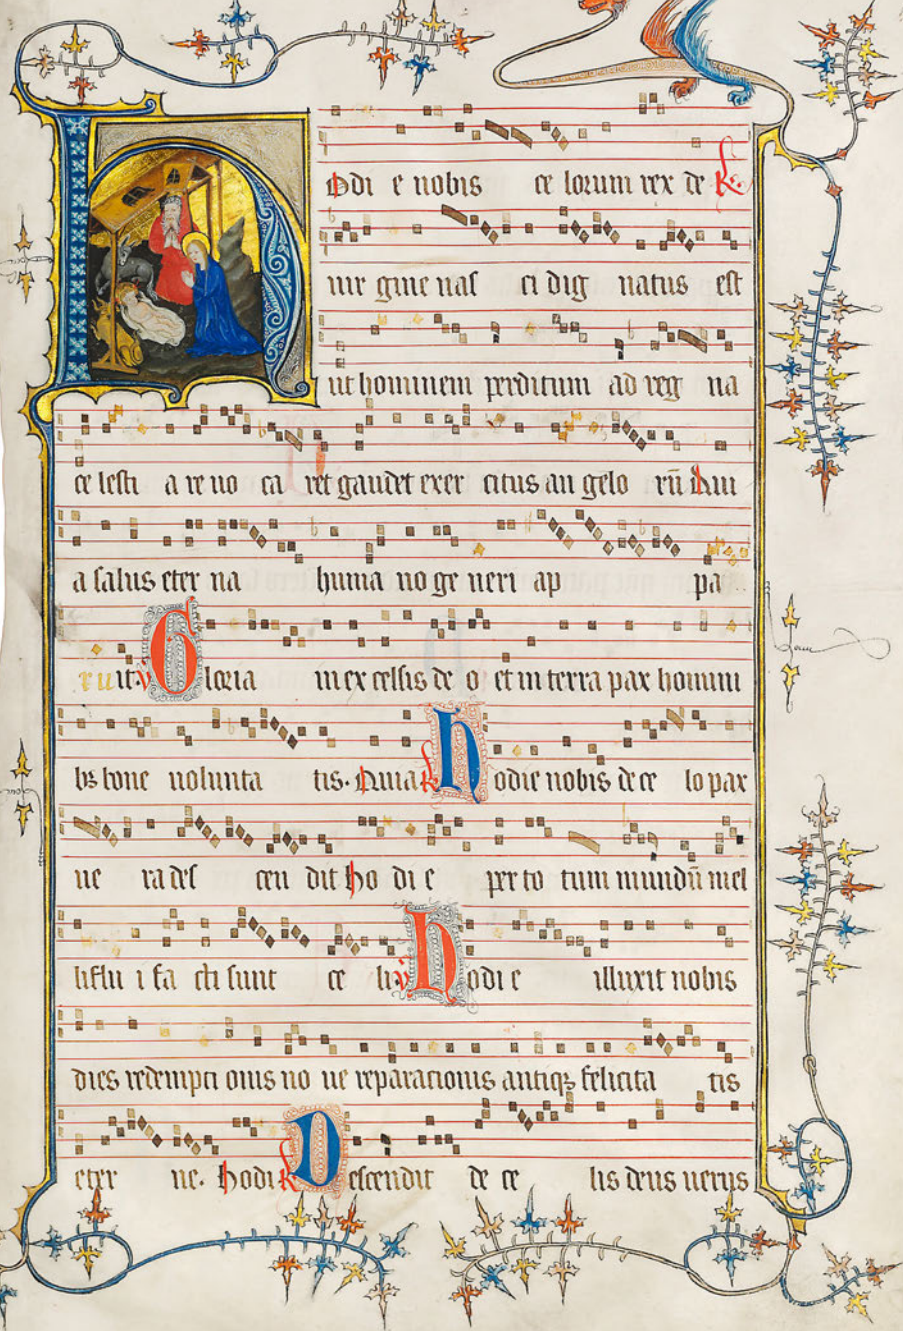 Hodi e nobis ce lorum rex de R.
uir gine nas ci dig natus est
ut hominem perditum ad reg na
ce lesti a re uo ca ret gaudet exer citus an gelo rū Qui
a salus eter na huma no ge neri ap pa
ruit. V Gloria in ex celsis de o et in terra pax homini
bs bone uolunta tis. Quia R Hodie nobis de ce lo pax
ue ra des cen dit Ho di e per to tum mundū mel
liflu i fa cti sunt ce li V Hodi e illuxit nobis
dies redempti onis no ue reparationis antiqꝫ felicita tis
eter ne. Hodi R Descendit de ce lis deus uerus